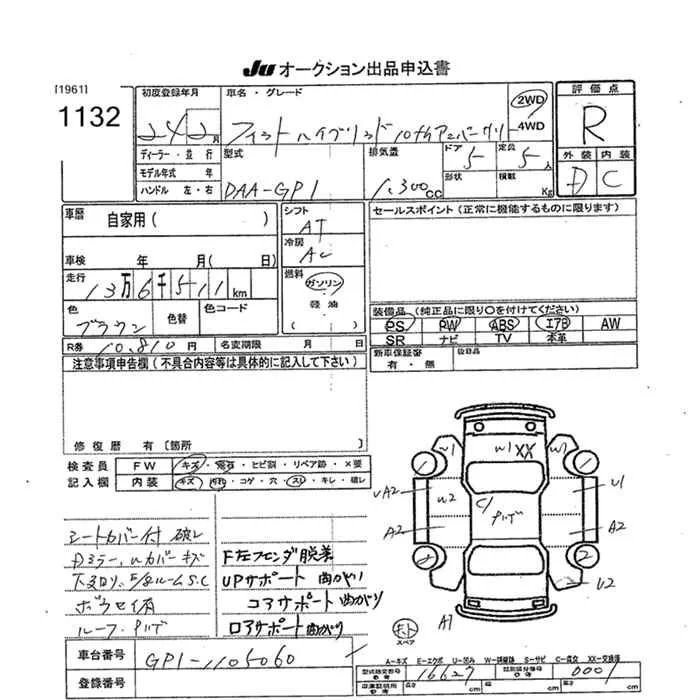 JU オークション出品申込書
[1961]
1132
初度登録年月
24 2月
車名・グレード
フィットハイブリッド10thアニバーサリー
2WD
4WD
評価点
R
外装 内装
D C
ディーラー・並行
モデル年式 年
ハンドル 左・右
型式
DAA-GP1
排気量
1,300cc
ドア
5
定員
5人
形状
積載
Kg
車歴
自家用( )
車検 年 月( 日)
走行
13万6千511km
色
ブラウン
色替
色コード
R券
10,810円
名変期限 月 日
シフト
AT
冷房
AC
燃料
ガソリン
軽油
( )
セールスポイント(正常に機能するものに限ります)
装備品(純正品に限り○を付けてください)
PS PW ABS エアB AW
SR ナビ TV 本革
新車保証書
有・無
後日品
注意事項申告欄(不具合内容等は具体的に記入して下さい)
修復歴 有[箇所 ]
検査員
記入欄
FW
キズ・飛石・ヒビ割・リペア跡・×要
内装
キズ・汚れ・コゲ・穴・スレ・キレ・破レ
シートカバー付 破レ
Dミラー、ルカバーキズ
下まわりサビ・ルームS.C
ボウセイ済
ルーフ・アルデ
F左フェンダ脱着
UPサポート 曲がり
コアサポート曲がり
ロアサポート曲がり
車台番号
GP1-1105060
登録番号
W1
W1
XX
UA2
W2
C1
アルデ
U1
A2
A2
U2
A1
スペア
A-キズ E-エクボ U-凹み W-補修跡 S-サビ C-腐食 XX-交換済
型式指定番号
16627
類別区分番号
0007
cm
cm
cm